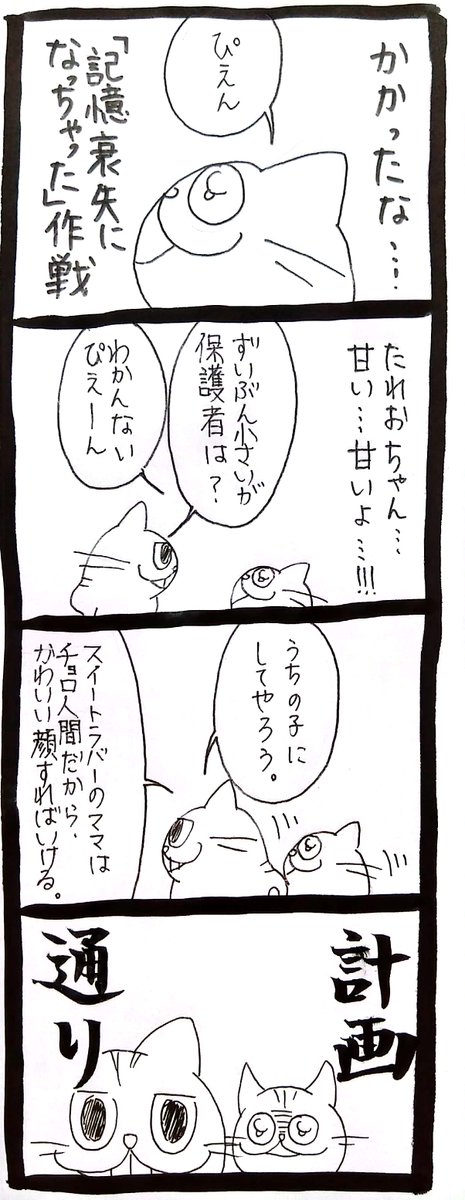 かかったな…
ぴえん
「記憶衰失に
なっちゃった」作戦
たれおちゃん…
甘い…甘いよ…!!!
ずいぶん小さいが
保護者は?
わかんない
ぴえーん
うちの子に
してやろう。
スイートラバーのママは
チョロ人間だから、
かわいい顔すればいける。
計画
通り